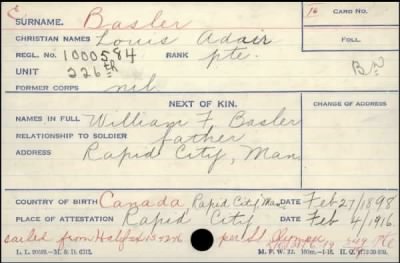 SURNAME. Basler
CARD NO.
CHRISTIAN NAMES Louis Adair
FOLL.
REGL. NO. 1000584 RANK pte.
UNIT 226th
FORMER CORPS nil
NEXT OF KIN. CHANGE OF ADDRESS
NAMES IN FULL William F. Basler
RELATIONSHIP TO SOLDIER father
ADDRESS Rapid City, Man.
COUNTRY OF BIRTH Canada Rapid City Man. DATE Feb 27/1898
PLACE OF ATTESTATION Rapid City DATE Feb 4/1916
sailed from Halifax per S.S. Olympic